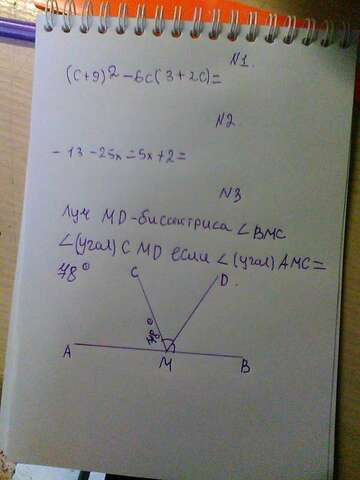 N1.
(c+9)² -6c(3+2c)=
N2
-13-25x=5x+2=
N3
Луч MD-биссектриса ∠BMC
∠(угол) CMD если ∠(угол) AMC=
78°
C
D.
78°
A
M
B